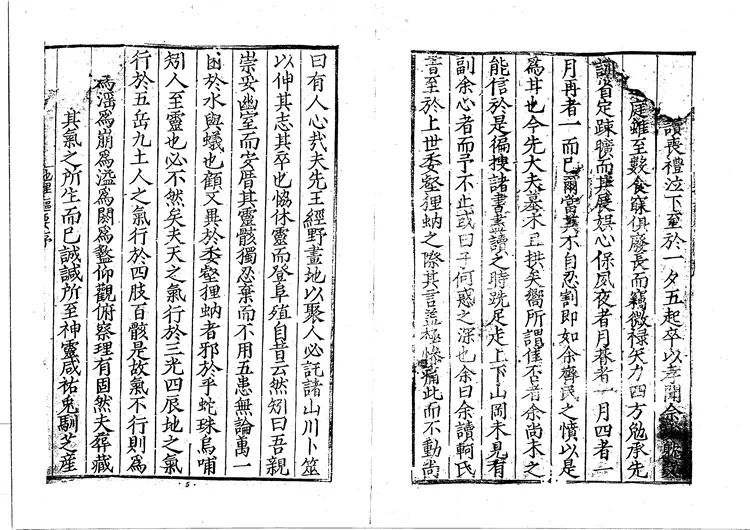 讀喪禮泣下至於一夕五起卒以孝聞余
庭雖至數食寢俱廢長而竊微祿矢力四方勉承先
訓省定疎曠而其展娛心保夙夜者月一月四者一
月再者一而已爾當其不自忍割即如余齊民之憤以是
為其也今先大夫墓木且拱矣嚮所謂僅否者余尚未之
能信於是徧搜諸書晝讀之時跣足走上下山岡未見有
副余心者而予不止或曰子何惑之深也余曰余讀軻氏
書至於上世委壑狸蚋之際其言葢極慘痛此而不動尚
曰有人心㢤夫先王經野畫地以聚人必託諸山川卜筮
以伸其志其卒也恊休靈而登阜殖自昔云然矧曰吾親
崇妥幽室而安厝其靈骸獨忍棄而不用五患無論萬一
困於水與蟻也顧又異於委壑狸蚋者邪於乎蛇珠烏哺
矧人至靈也必不然矣夫天之氣行於三光四辰地之氣
行於五岳九土人之氣行於四肢百骸是故氣不行則為
為滛為崩為溢為閼為盭仰觀俯察理有固然夫葬藏
其氣之所生而已誠誠所至神靈咸祐兎馴芝産
序
5